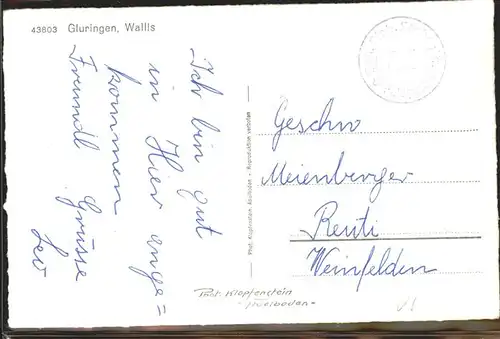 43603 Gluringen, Wallis
Ich bin gut
in Hier ange=
kommen
Freundl. Grüsse
Leo
Phot. Klopfenstein, Adelboden - Reproduktion verboten
Geschw
Meienberger
Reuti
Weinfelden
Phot. Klopfenstein
- Adelboden -